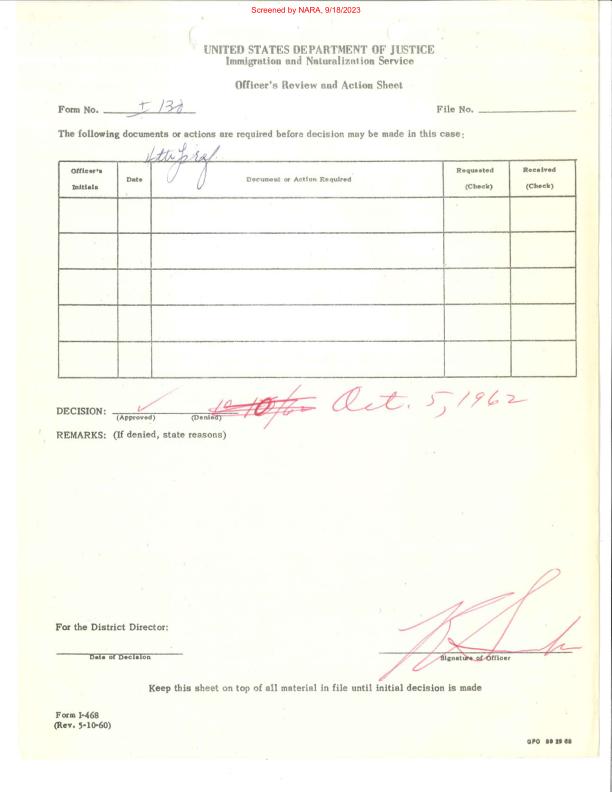 Screened by NARA, 9/18/2023
UNITED STATES DEPARTMENT OF JUSTICE
Immigration and Naturalization Service
Officer's Review and Action Sheet
Form No. I 138 File No.
The following documents or actions are required before decision may be made in this case:
Officer's Initials Date Document or Action Required Requested (Check) Received (Check)
DECISION: Oct. 5, 1962
(Approved) (Denied)
REMARKS: (If denied, state reasons)
For the District Director:
Date of Decision Signature of Officer
Keep this sheet on top of all material in file until initial decision is made
Form I-468
(Rev. 5-10-60)
GPO 89 29 68